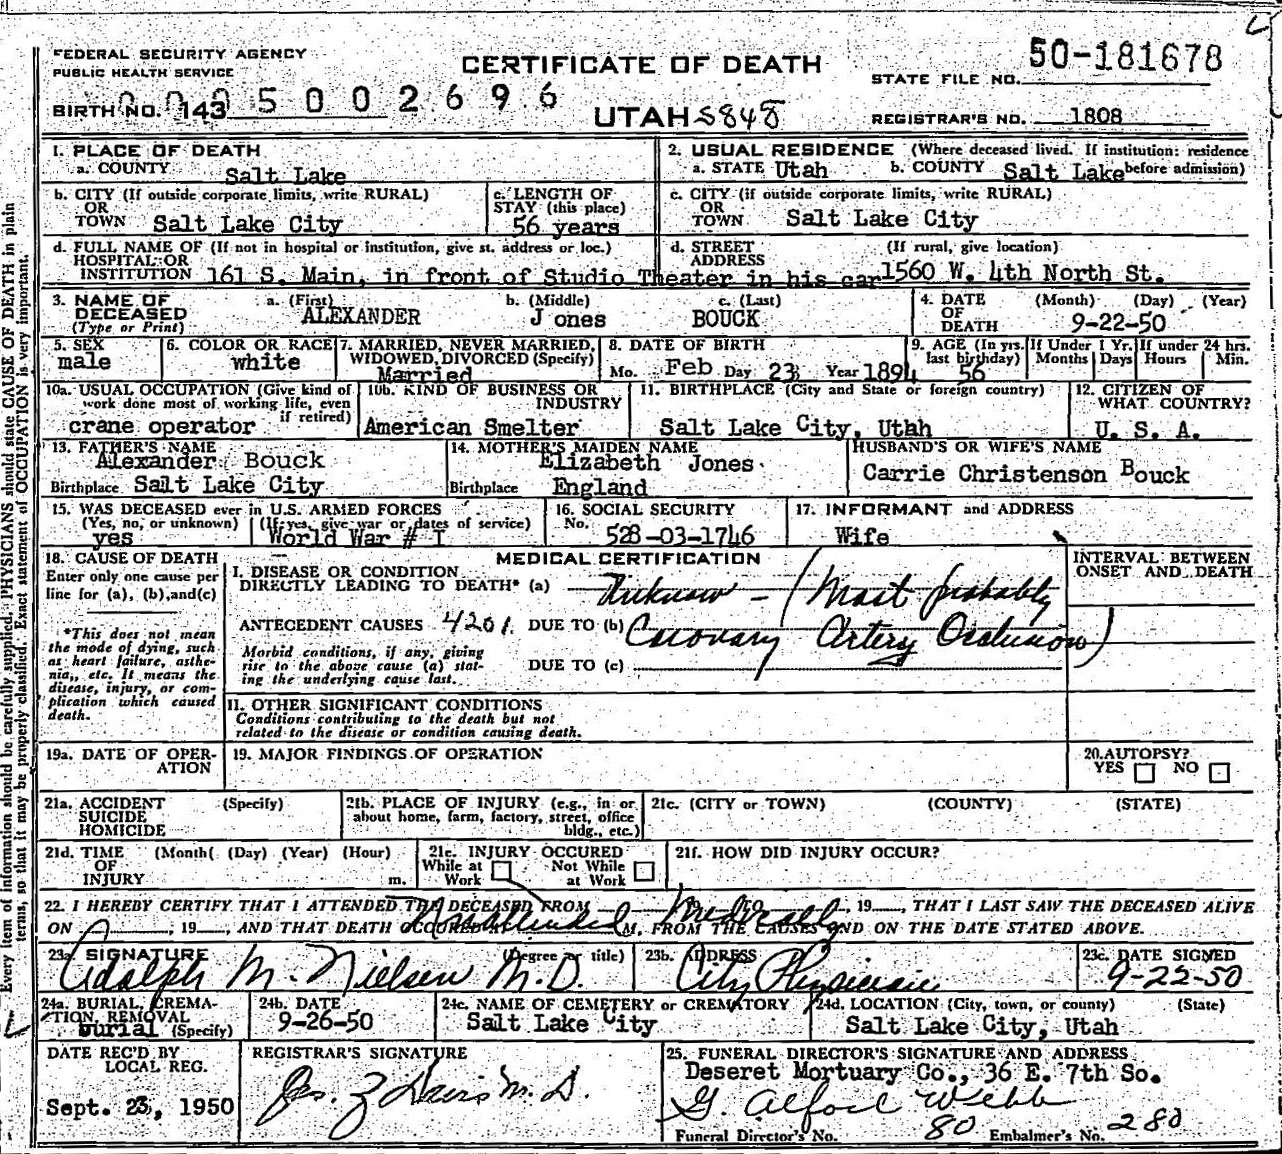 FEDERAL SECURITY AGENCY
PUBLIC HEALTH SERVICE
CERTIFICATE OF DEATH
STATE FILE NO. 50-181678
BIRTH NO. 143 5 0 0 2 6 9 6
UTAH S848
REGISTRAR'S NO. 1808
1. PLACE OF DEATH
a. COUNTY Salt Lake
2. USUAL RESIDENCE (Where deceased lived. If institution: residence before admission)
a. STATE Utah b. COUNTY Salt Lake
b. CITY (If outside corporate limits, write RURAL) OR TOWN Salt Lake City
c. LENGTH OF STAY (this place) 56 years
c. CITY (if outside corporate limits, write RURAL) OR TOWN Salt Lake City
d. FULL NAME OF (If not in hospital or institution, give st. address or loc.) HOSPITAL OR INSTITUTION 161 S. Main, in front of Studio Theater in his car
d. STREET ADDRESS (If rural, give location) 1560 W. 4th North St.
3. NAME OF DECEASED (Type or Print)
a. (First) ALEXANDER b. (Middle) Jones c. (Last) BOUCK
4. DATE OF DEATH (Month) (Day) (Year) 9-22-50
5. SEX male
6. COLOR OR RACE white
7. MARRIED, NEVER MARRIED, WIDOWED, DIVORCED (Specify) Married
8. DATE OF BIRTH Mo. Feb Day 23 Year 1894
9. AGE (In yrs. last birthday) 56 If Under 1 Yr. Months Days If under 24 hrs. Hours Min.
10a. USUAL OCCUPATION (Give kind of work done most of working life, even if retired) crane operator
10b. KIND OF BUSINESS OR INDUSTRY American Smelter
11. BIRTHPLACE (City and State or foreign country) Salt Lake City, Utah
12. CITIZEN OF WHAT COUNTRY? U. S. A.
13. FATHER'S NAME Alexander Bouck
Birthplace Salt Lake City
14. MOTHER'S MAIDEN NAME Elizabeth Jones
Birthplace England
HUSBAND'S OR WIFE'S NAME Carrie Christenson Bouck
15. WAS DECEASED ever in U.S. ARMED FORCES
(Yes, no, or unknown) yes (If yes, give war or dates of service) World War # I
16. SOCIAL SECURITY No. 528-03-1746
17. INFORMANT and ADDRESS Wife
18. CAUSE OF DEATH
Enter only one cause per line for (a), (b), and (c)
*This does not mean the mode of dying, such as heart failure, asthenia, etc. It means the disease, injury, or complication which caused death.
MEDICAL CERTIFICATION
INTERVAL BETWEEN ONSET AND DEATH
I. DISEASE OR CONDITION DIRECTLY LEADING TO DEATH* (a) Unknown - (Most probably
ANTECEDENT CAUSES 4201. DUE TO (b) Coronary Artery Occlusion)
Morbid conditions, if any, giving rise to the above cause (a) stating the underlying cause last.
DUE TO (c)
II. OTHER SIGNIFICANT CONDITIONS
Conditions contributing to the death but not related to the disease or condition causing death.
19a. DATE OF OPERATION
19. MAJOR FINDINGS OF OPERATION
20. AUTOPSY? YES NO
21a. ACCIDENT SUICIDE HOMICIDE (Specify)
21b. PLACE OF INJURY (e.g., in or about home, farm, factory, street, office bldg., etc.)
21c. (CITY or TOWN) (COUNTY) (STATE)
21d. TIME OF INJURY (Month( (Day) (Year) (Hour) m.
21e. INJURY OCCURED While at Work Not While at Work
21f. HOW DID INJURY OCCUR?
22. I HEREBY CERTIFY THAT I ATTENDED THE DECEASED FROM TO , 19 , THAT I LAST SAW THE DECEASED ALIVE
ON , 19 , AND THAT DEATH OCCURED M, FROM THE CAUSES AND ON THE DATE STATED ABOVE.
Unattended Medically
23a. SIGNATURE (Degree or title) Adolph M. Nielsen M.D.
23b. ADDRESS City Physician
23c. DATE SIGNED 9-22-50
24a. BURIAL, CREMATION, REMOVAL (Specify) burial
24b. DATE 9-26-50
24c. NAME OF CEMETERY or CREMATORY Salt Lake City
24d. LOCATION (City, town, or county) (State) Salt Lake City, Utah
DATE REC'D BY LOCAL REG. Sept. 23, 1950
REGISTRAR'S SIGNATURE
M. D.
25. FUNERAL DIRECTOR'S SIGNATURE AND ADDRESS
Deseret Mortuary Co., 36 E. 7th So.
G. Alford Webb
Funeral Director's No. 80 Embalmer's No. 280
Every item of information should be carefully supplied. PHYSICIANS should state CAUSE OF DEATH in plain
terms, so that it may be properly classified. Exact statement of OCCUPATION is very important.